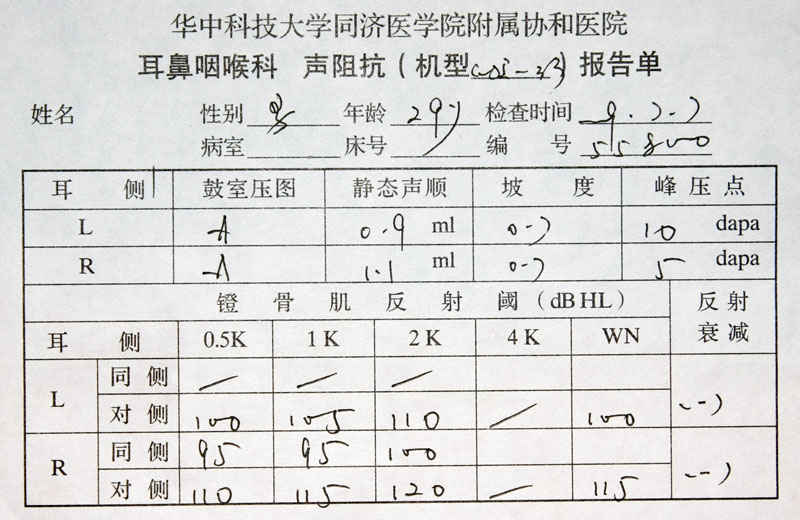 华中科技大学同济医学院附属协和医院
耳鼻咽喉科 声阻抗(机型) 报告单
姓名 性别 男 年龄 29岁 检查时间 9.7.7
病室 床号 编 号 55800
耳 侧 鼓室压图 静态声顺 坡 度 峰压点
L A 0.9 ml 0.7 10 dapa
R A 1.1 ml 0.7 5 dapa
镫骨肌反射阈(dB HL) 反射衰减
耳 侧 0.5K 1K 2K 4K WN
L 同侧 / / /
对侧 100 105 110 / 100 (-)
R 同侧 95 95 100
对侧 110 115 120 / 115 (-)